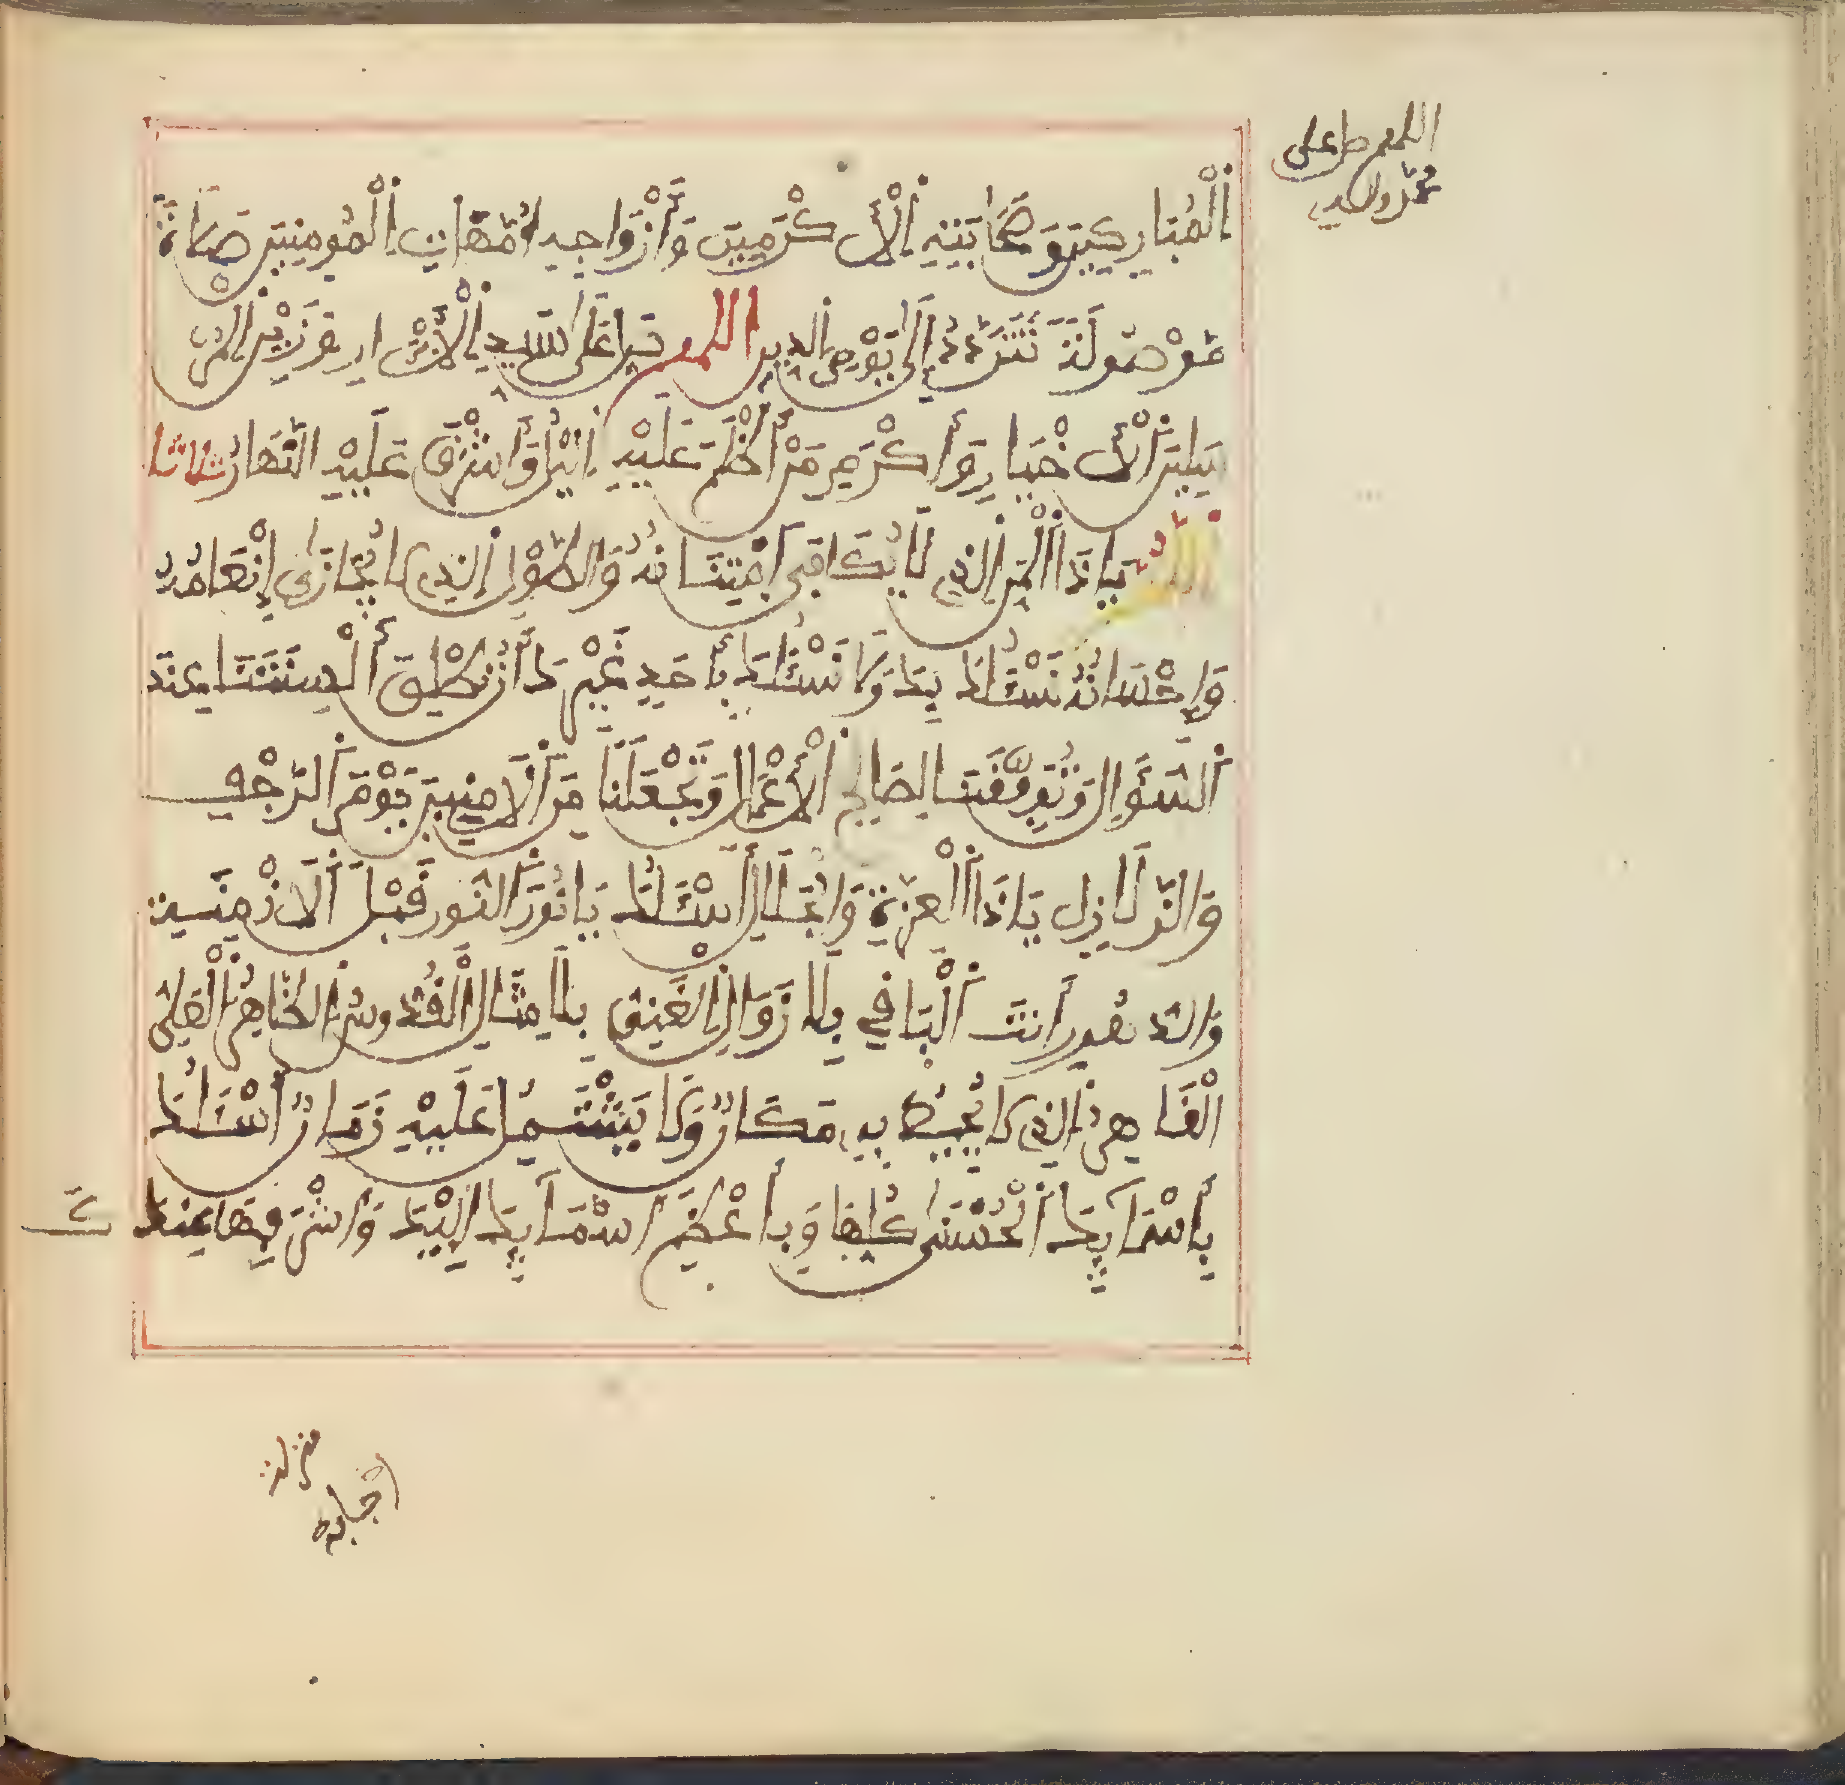 اللهم صل على
محمد والديه
اِلْمُبَارَكِينَ وَصَحَابَتِهِ اِلْأَكْرَمِينَ وَأَزْوَاجِهِ اُمَّهَاتِ اِلْمُومِنِينَ صَلَاةً
مَّوْصُولَةً تَتَرَدَّدُ إِلَى يَوْمِ اِلدِّينِ اللهم صَلِّ عَلَى سَيِّدِ اِلْأَبْرَارِ وَزَيْنِ اِلْمُرْ
سَلِينَ اَلْأَخْيَارِ وَأَكْرَمِ مَنْ أَظْلَمَ عَلَيْهِ اِلَّيْلُ وَأَشْرَقَ عَلَيْهِ النَّهَارُ ثلاثا
اللَّهُمَّ يَا ذَا اَلْمَنِّ اِلذِي لَا يُكَافَى اَمْتِنَانُهُ وَالطَّوْلِ اِلذِي لَا يُجَازَى إِنْعَامُهُ
وَإِحْسَانُهُ نَسْئَلُكَ بِكَ وَلَا نَسْئَلُكَ بِأَحَدٍ غَيْرِكَ أَنْ تُطْلِقَ أَلْسِنَتَنَا عِنْدَ
اَلسُّؤَالِ وَتُوَفِّقَنَا لِصَالِحِ اِلْأَعْمَالِ وَتَجْعَلَنَا مِنَ اَلْآمِنِينَ يَوْمَ اَلرَّجْفِ
وَالزَّلَازِلِ يَا ذَا اَلْعِزَّةِ وَالْجَلَالِ أَسْئَلُكَ يَا نُورَ اَلنُّورِ قَبْلَ اَلْأَزْمِنَةِ
وَالدُّهُورِ أَنْتَ اَلْبَاقِي بِلَا زَوَالٍ اِلْغَنِيُّ بِلَا مِثَالٍ اِلْقُدُّوسُ اُلطَّاهِرُ اُلْعَلِيُّ
الْقَاهِرُ اُلذِي لَا يُحِيطُ بِهِ مَكَانٌ وَلَا يَشْتَمِلُ عَلَيْهِ زَمَانٌ أَسْئَلُكَ
بِأَسْمَائِكَ اَلْحُسْنَى كُلِّهَا وَبِأَعْظَمِ اسْمَائِكَ إِلَيْكَ وَأَشْرَفِهَا عِنْدَكَ
منزلة
اجابة